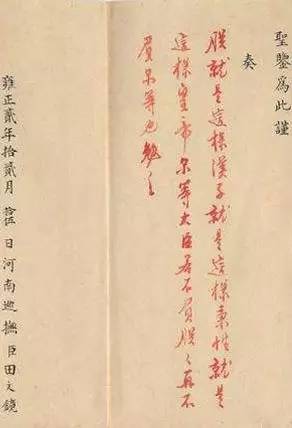 聖鑒為此謹
奏
朕就是這樣漢子就是這樣秉性就是
這樣皇帝尔等大臣若不負朕朕再不
負尔等也勉之
雍正貳年拾貳月 拾伍 日河南巡撫臣田文鏡